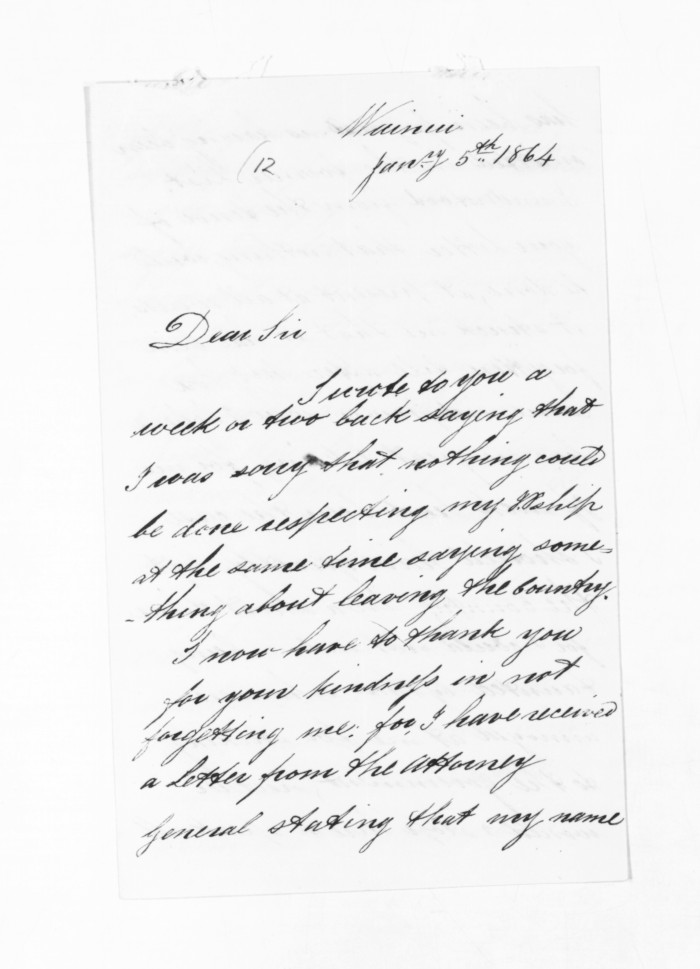 Wainui
(12
Janry 5th 1864
Dear Sir
I wrote to you a
week or two back saying that
I was sorry that nothing could
be done respecting my JPship
at the same time saying some=
-thing about leaving the Country.
I now have to thank you
for your kindness in not
forgetting me: for I have received
a letter from the Attorney
General stating that my name